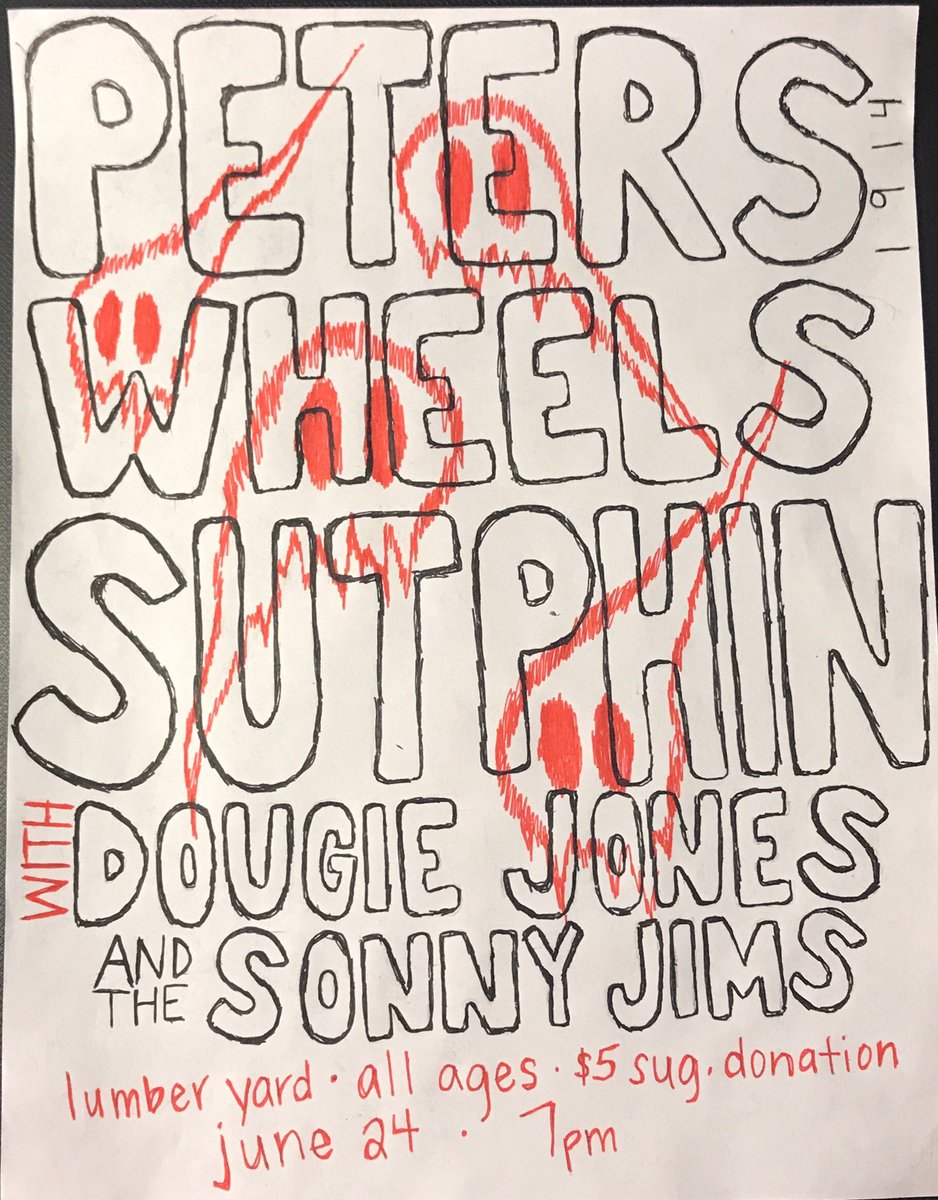 PETERS
WHEELS
SUTPHIN
WITH DOUGIE JONES
AND THE SONNY JIMS
lumber yard · all ages · $5 sug. donation
june 24 · 7pm